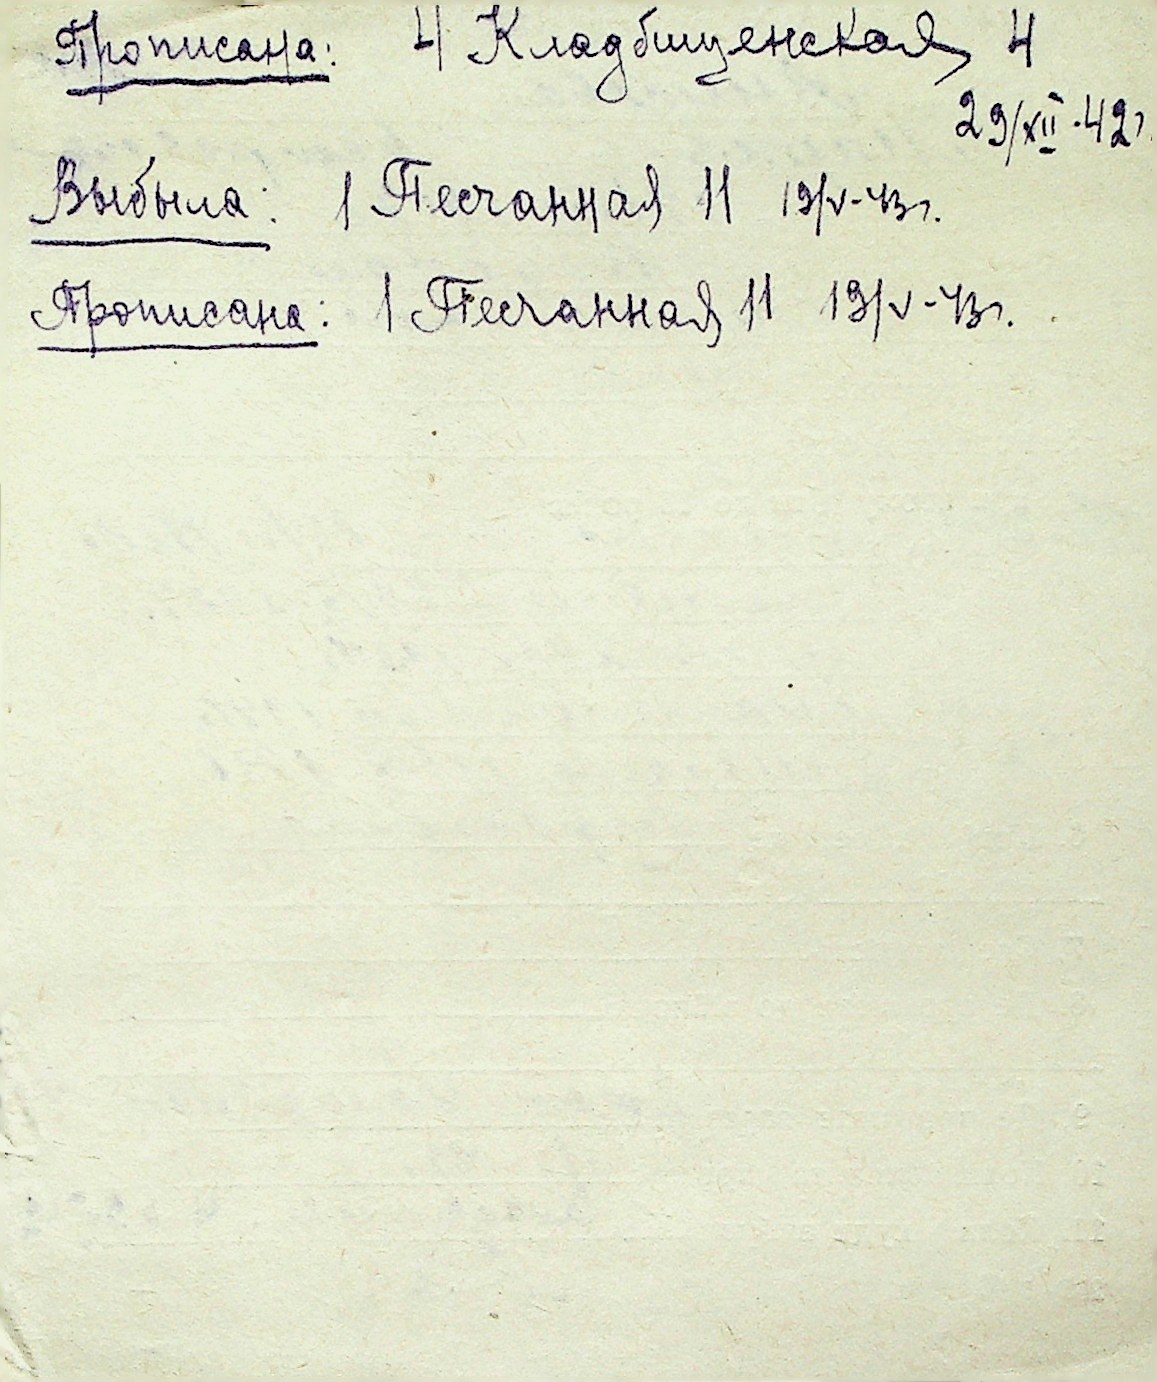 Прописана: 4 Кладбищенская, 4
29/XII-42г.
Выбыла: 1 Песчанная 11 19/V-43г.
Прописана: 1 Песчанная 11 19/V-43г.